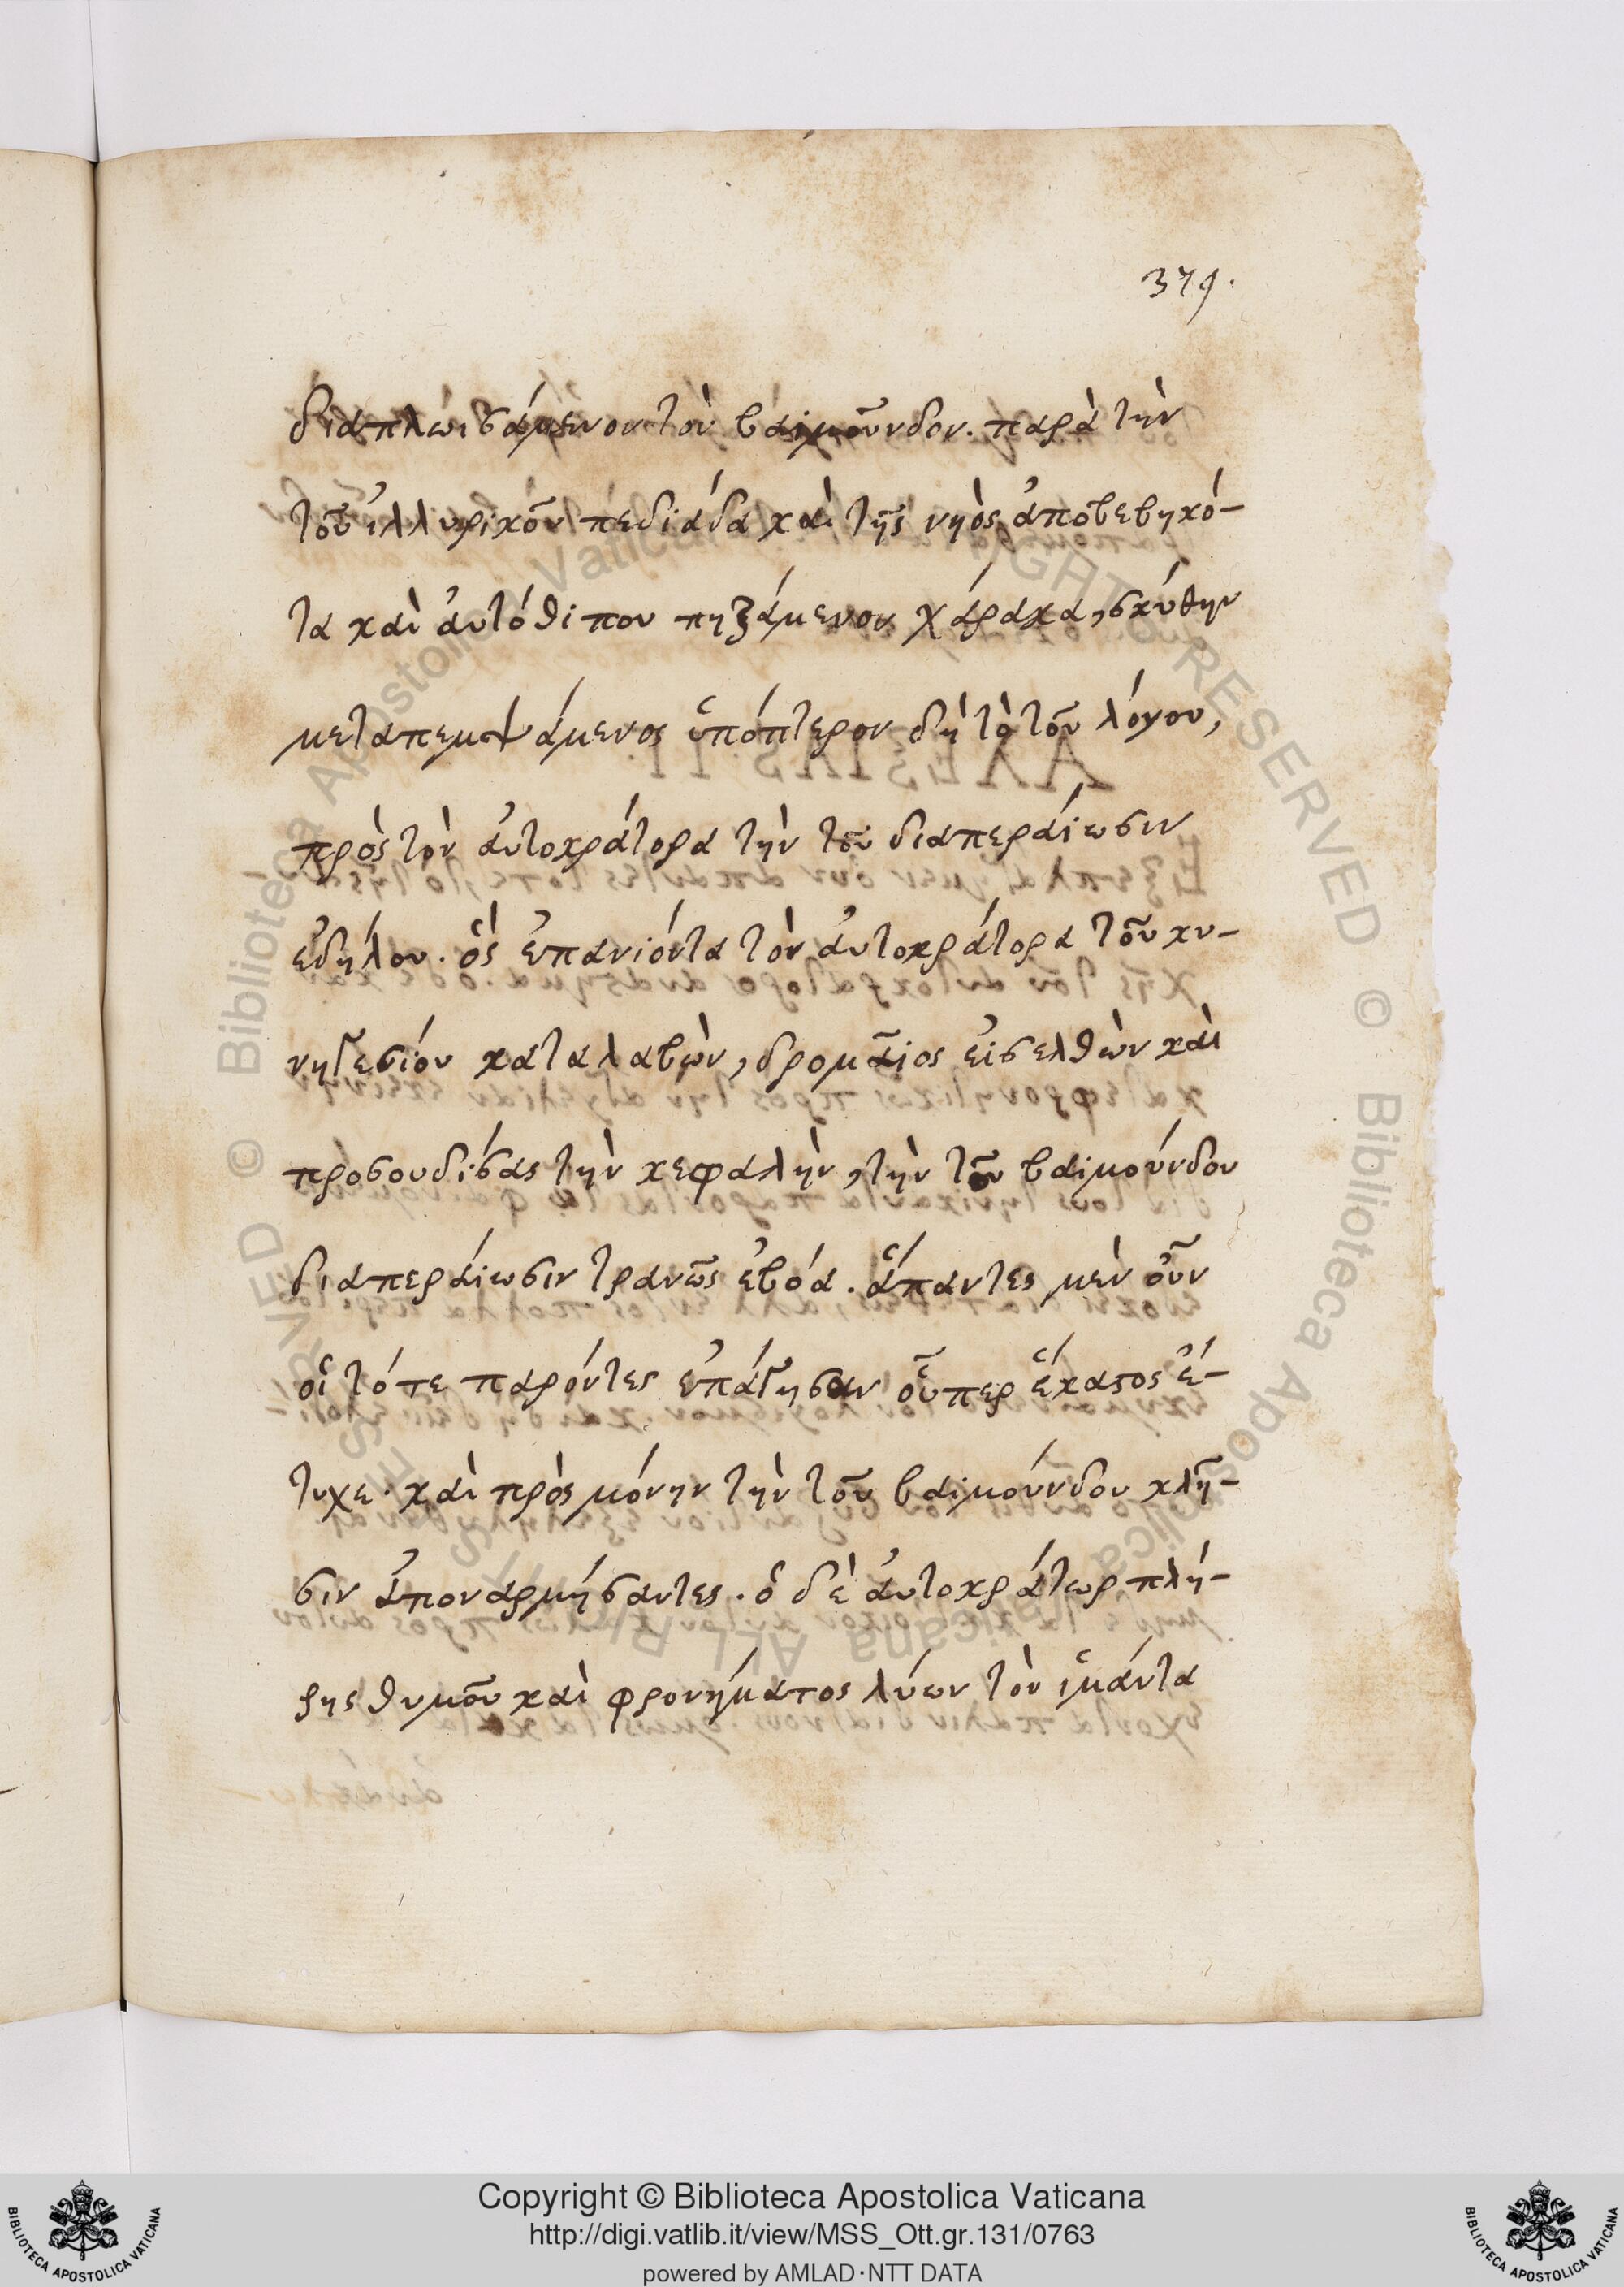 379.
διαπλωϊσάμενον τὸν βαϊμοῦνδον. παρὰ τὴν
τοῦ ἰλλυρικοῦ πεδιάδα καὶ τῆς νηὸς ἀποβεβηκό-
τα καὶ ἀυτόθι που πηξάμενον χάρακα, σκύθην
μεταπεμψάμενος ὑπόπτερον δὴ τὸ τοῦ λόγου,
πρὸς τὸν ἀυτοκράτορα τὴν του διαπεράιωσιν
ἐδήλου. ὃς ἐπανιόντα τὸν ἀυτοκράτορα τοῦ κυ-
νηγεσίου καταλαβὼν, δρομαῖος εἰσελθὼν καὶ
προσουδίσας τὴν κεφαλὴν, τὴν τοῦ βαϊμούνδου
διαπεράιωσιν τρανῶς ἐβόα. ἅπαντες μὲν οὖν
οἱ τότε παρόντες ἐπάγησαν οὗπερ ἕκαστος ἔ-
τυχε. καὶ πρὸς μόνην τὴν τοῦ βαϊμούνδου κλῆ-
σιν ἀποναρκήσαντες. ὁ δὲ ἀυτοκράτωρ πλή-
ρης θυμοῦ καὶ φρονήματος λύων τὸν ἱμάντα
Copyright © Biblioteca Apostolica Vaticana
http://digi.vatlib.it/view/MSS_Ott.gr.131/0763
powered by AMLAD·NTT DATA